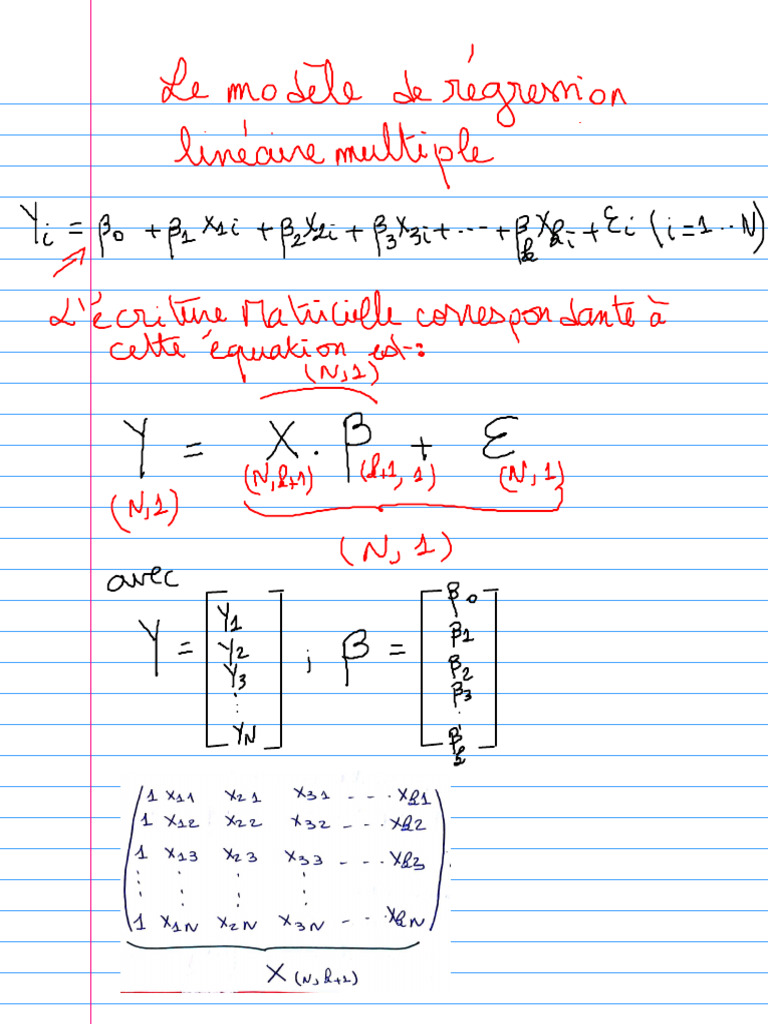 Le modèle de régression
linéaire multiple
Yi = β0 + β1 X1i + β2 X2i + β3 X3i + ... + βk Xki + εi (i=1 .. N)
L'écriture Matricielle correspondante à
cette équation est :
(N,1)
Y = X . β + ε
(N,1) (N,k+1) (k+1, 1) (N,1)
(N, 1)
avec
Y = [Y1 Y2 Y3 ⋮ YN] ; β = [β0 β1 β2 β3 ⋮ βk]
1 X11 X21 X31 - - - - Xk1
1 X12 X22 X32 - - - - Xk2
1 X13 X23 X33 - - - - Xk3
⋮ ⋮ ⋮ ⋮
1 X1N X2N X3N - - - - XkN
X (N, k+1)